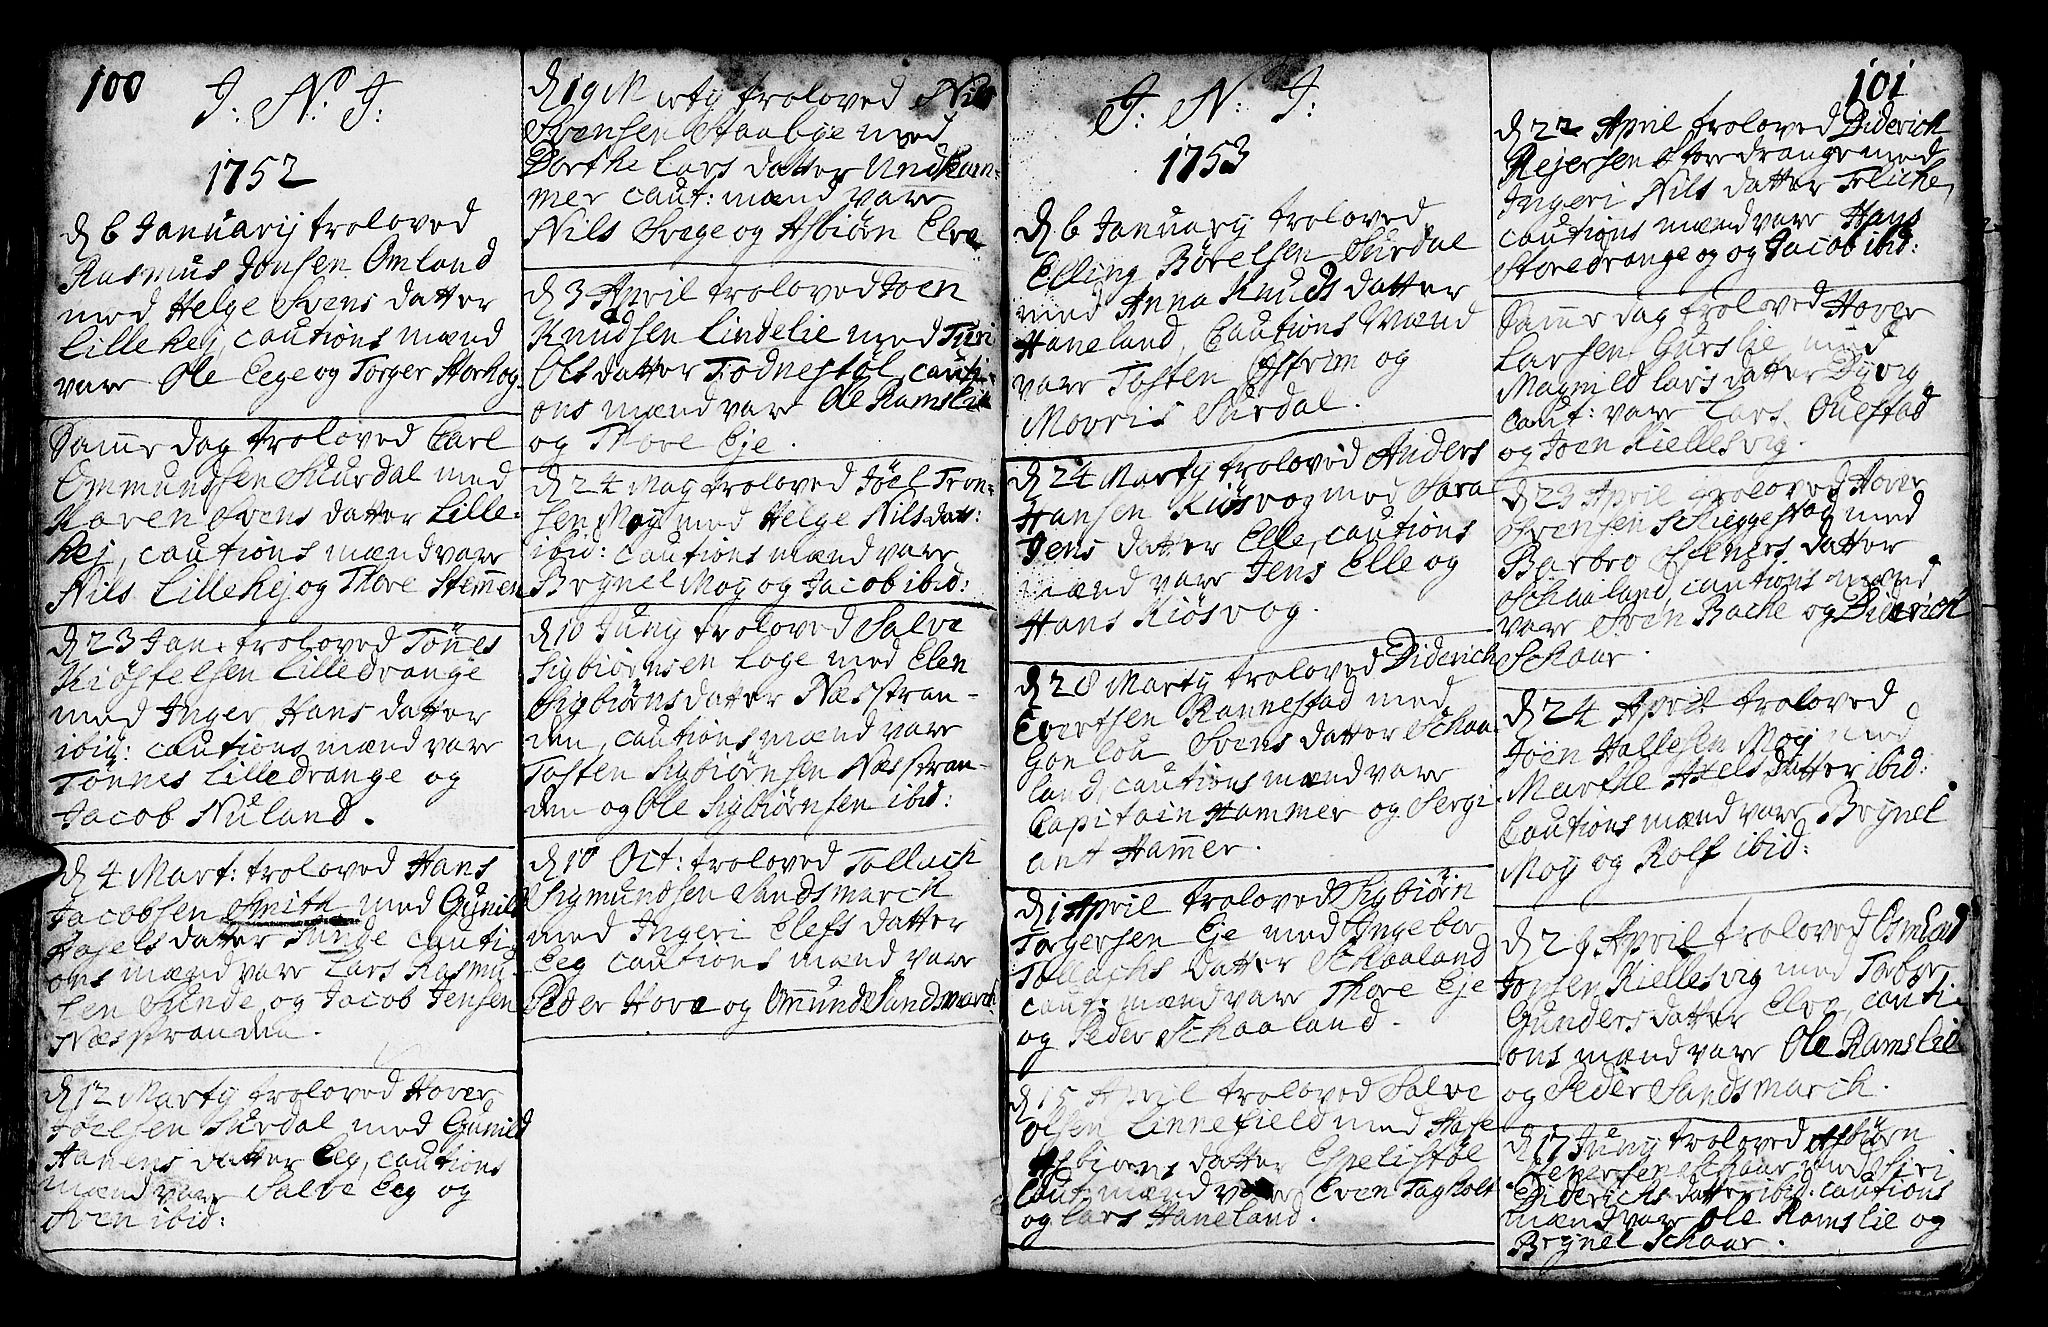 100
J: N: J:
1752
d 6 Januarij troloved
Rasmus Jonsen Omland
med Helge Svens datter
Lillehej, cautions mænd
vare Ole Eege og Torger Storhog.
Samme dag troloved Carl
Ommundsen Skurdal med
Karen Svens datter Lille-
hej, cautions mænd vare
Nils Lillehej og Thore Stemmen
d 23 Jan: troloved Tönnes
Kiöstelsen Lilledrange
med Inger Hans datter
ibid: cautions mænd vare
Tönnes Lilledrange og
Jacob Nuland.
d 4 Mart: troloved Hans
Jacobsen Smith med Gunild
datter Sunde cauti-
ons mænd vare Lars Rasmu-
sen Sunde og Jacob Jensen
Næsstranden.
d 12 Martij troloved Hover
Jöelsen Surdal med Gunild
Hanens datter Eeg, cautions
mænd vare Salve Eeg og
Sven ibid:
d 19 Martij troloved Nils
Svensen Staabye med
Dorthe Lars datter Undkam-
mer caut: mænd vare
Nils Svege og Asbiörn Elve
d 3 April troloved Joen
Knudsen Lindelie med Turi
Ols datter Todnestöl, cauti-
ons mænd vare Ole Ramslie
og Thore Eje.
d 24 Maij troloved Jöel Tron-
sen Moij med Helge Nilsdatt:
ibid: cautions mænd vare
Brynel Moij og Jacob ibid:
d 10 Junij troloved Salve
Sigbiörnsen Loge med Elen
Sigbiörnsdatter Næsstran-
den, cautions mænd vare
Tosten Sigbiörnsen Næsstran-
den og Ole Sigbiörnsen ibid:
d 10 Oct: troloved Tollach
Sigmundsen Sandsmarch
med Ingeri Elefs datter
Eeg cautions mænd vare
Peder Hove og Ommunde Sandsmarch
J: N: J:
1753
d 6 Januarij troloved
Elling Börelsen Surdal
med Anna Knuds datter
Haneland, Cautions Mænd
vare Tosten Östrim og
Movris Surdal.
d 24 Martij troloved Anders
Hansen Kiösvog med Sara
Jens datter Elle, cautions
mænd vare Jens Elle og
Hans Kiösvog.
d 28 Martij troloved Diderich
Evertsen Rannestad med
Gonlou Svens datter Schaa-
land, cautions mænd vare
Capitain Hammer og Sergi-
ant Hammer.
d 1 April troloved Sigbiörn
Torgersen Eje med Ingebor
Tollachs datter Schaaland
caut: mænd vare Thore Eje
og Peder Schaaland.
d 15 April troloved Salve
Olsen Linnefield med
Asbiörns datter Espelistöl
Caut: mænd vare Even Tagholt
og Lars Haneland.
101
d 22 April troloved Diderich
Rejersen Storedrange med
Ingeri Nils datter
cautions mænd vare Hans
Storedrange og og Jacob ibid:
Samme dag troloved Hover
Larsen Gurslie med
Magnild Lars datter Dyvig
Caut: vare Lars Ouestad
og Joen Kiellesvig.
d 23 April troloved Hover
Svensen Schieggestad med
Barbro Steners datter
Schaaland, cautions mænd
vare Sven Bache og Diderich
Schaar.
d 24 April troloved
Jöen Hallesen Moij med
Marthe Axels datter ibid:
Cautions mænd vare Brynel
Moij og Rolf ibid:
d 29 April troloved Osmund
Jonsen Kiellesvig med Torbor
Gunders datter Elve, cauti-
ons mænd vare Ole Ramslie
og Peder Sandsmarch.
d 17 Junij troloved Asbiörn
Schaar med Siri
Diderichs datter ibid. cautions
mænd vare Ole Ramslie og
Brynel Schaar.